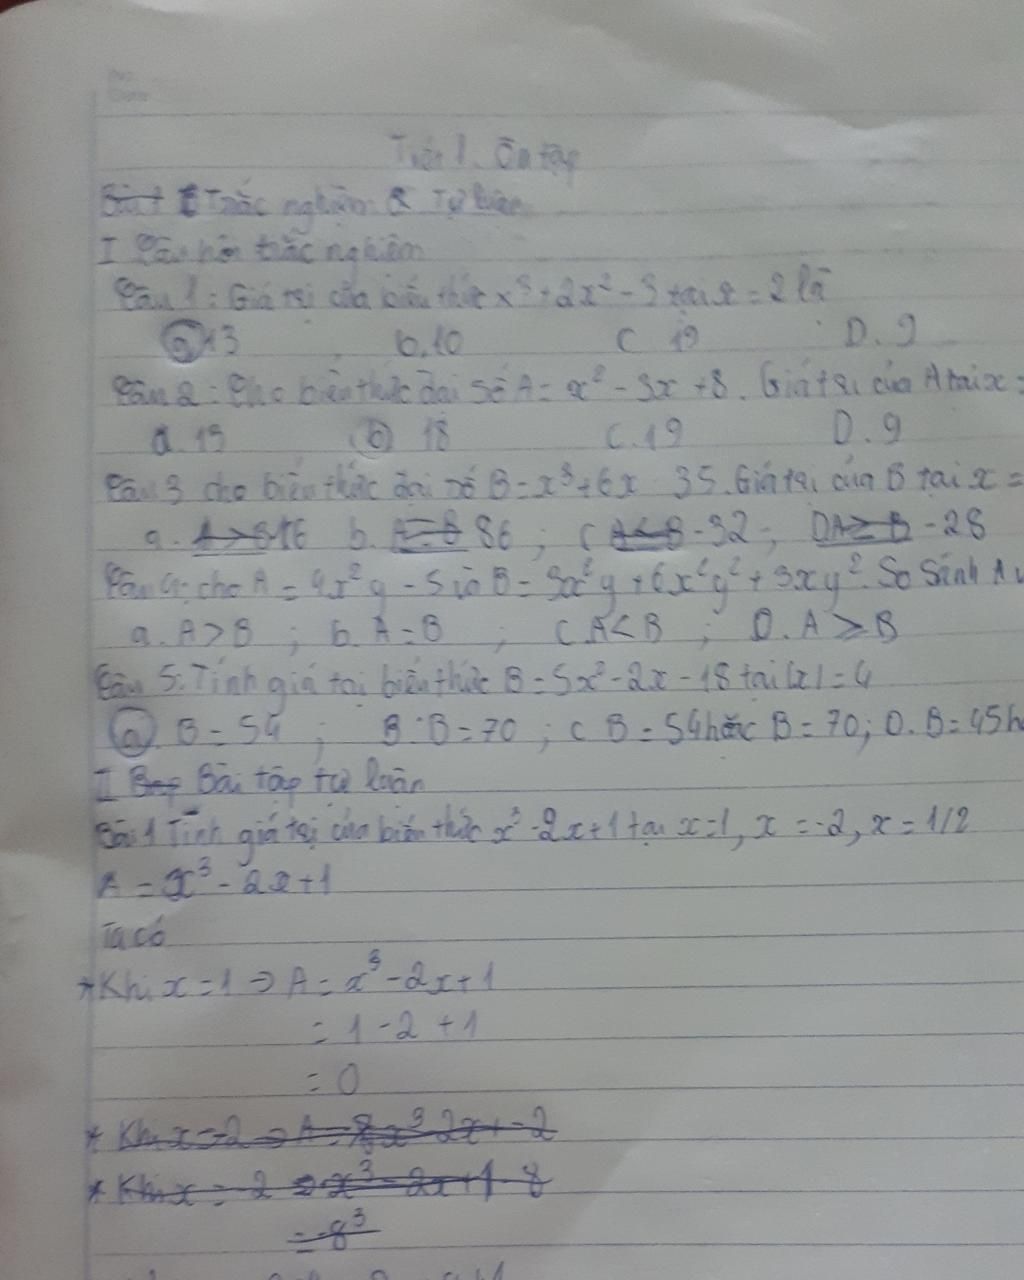 No.
Date
Tiết 1. Ôn tập
Bài 1 Trắc nghiệm & Tự luận
I Câu hỏi trắc nghiệm
Câu 1: Giá trị của biểu thức x³ + 2x² - 3 tại x = 2 là
a. 13 b. 10 C 19 D. 9
Câu 2: Cho biểu thức đại số A = x² - 3x + 8. Giá trị của A tại x =
a. 15 b 18 C. 19 D. 9
Câu 3 cho biểu thức đại số B = x³ + 6x 35. Giá trị của B tại x =
a. A > B 16 b. A = B 86 ; C A < B - 32 ; D A ≥ B - 28
Câu 4: cho A = 4x²y - 5 và B = 3x²y + 6x²y² + 3xy². So sánh A v
a. A > B ; b. A = B ; C A < B ; D. A ≥ B
Câu 5: Tính giá trị biểu thức B = 5x² - 2x - 18 tại |x| = 4
a. B = 54 ; B. B = 70 ; C B = 54 hoặc B = 70; D. B = 45 h
II Bài tập tự luận
Bài 1 Tính giá trị của biểu thức x³ - 2x + 1 tại x = 1, x = -2, x = 1/2
A = x³ - 2x + 1
Ta có
* Khi x = 1 ⇒ A = x³ - 2x + 1
= 1 - 2 + 1
= 0
* Khi x = -2 ⇒ A = 8x³ 2x + -2
* Khi x = -2 ⇒ x³ - 2x + 1 - 8
= -8³